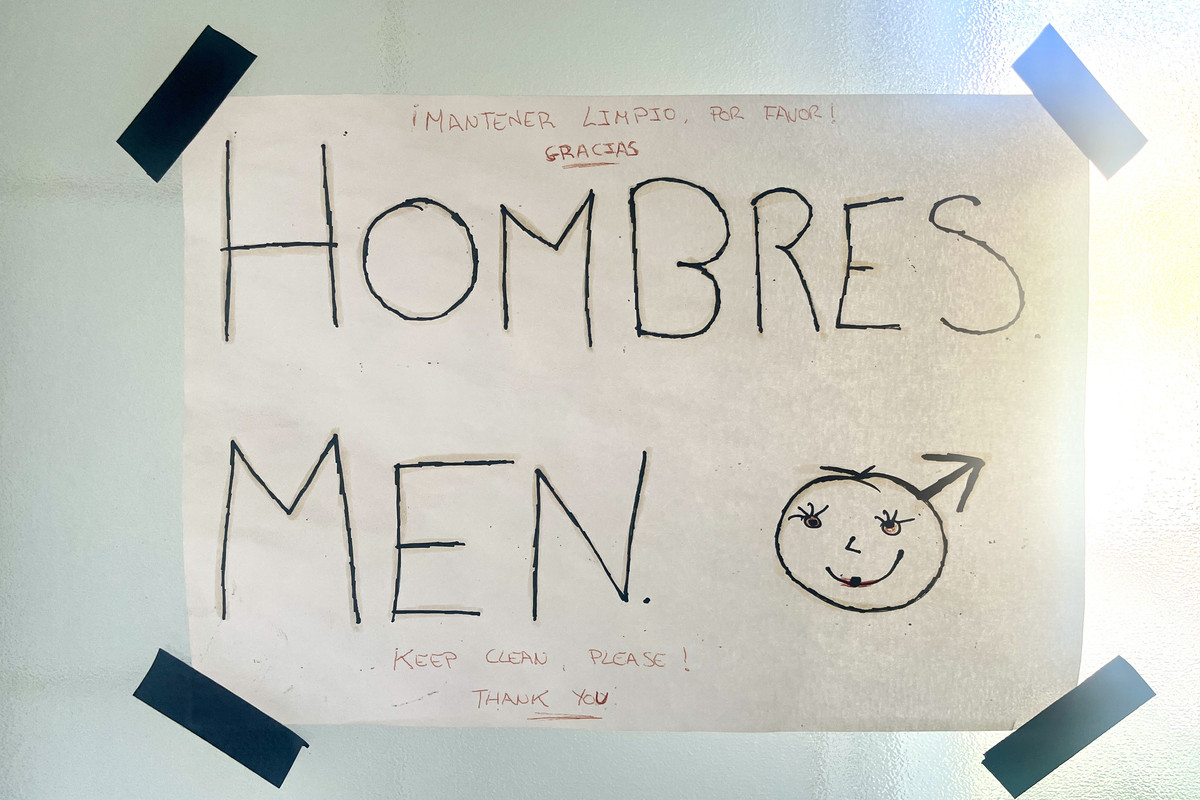 ¡MANTENER LIMPIO, POR FAVOR!
GRACIAS
HOMBRES
MEN.
KEEP CLEAN, PLEASE!
THANK YOU